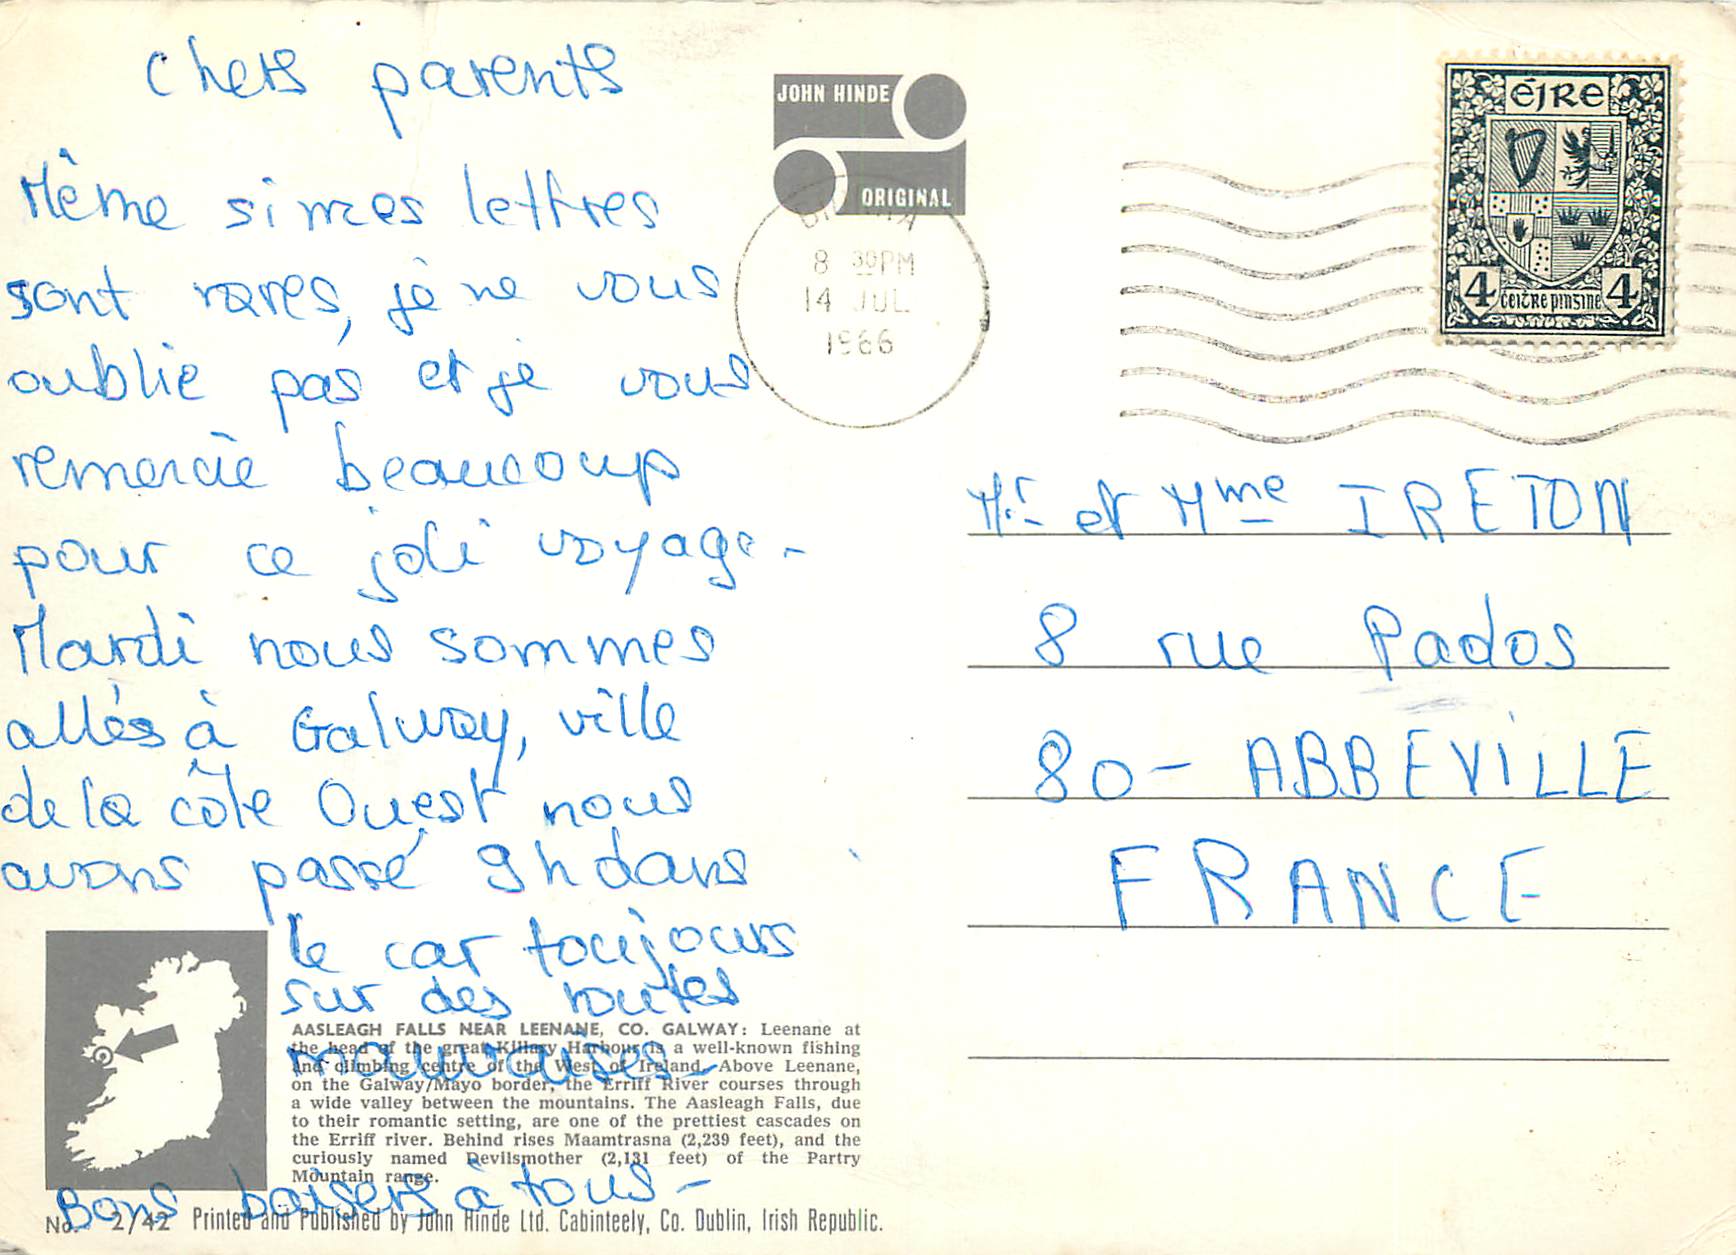 Chers parents
Même si mes lettres
sont rares, je ne vous
oublie pas et je vous
remercie beaucoup
pour ce joli voyage -
Mardi nous sommes
allés à Galway, ville
de la côte Ouest nous
avons passé 9h dans
le car toujours
sur des routes
mauvaises -
Bons baisers à tous -
JOHN HINDE
ORIGINAL
8 30PM
14 JUL
1966
éIRe
4 ceitre pinsine 4
Mr et Mme IRETON
8 rue Pados
80 - ABBEVILLE
FRANCE
AASLEAGH FALLS NEAR LEENANE, CO. GALWAY: Leenane at
the head of the great Killary Harbour is a well-known fishing
and climbing centre of the West of Ireland. Above Leenane,
on the Galway/Mayo border, the Erriff River courses through
a wide valley between the mountains. The Aasleagh Falls, due
to their romantic setting, are one of the prettiest cascades on
the Erriff river. Behind rises Maamtrasna (2,239 feet), and the
curiously named Devilsmother (2,131 feet) of the Partry
Mountain range.
No. 2/42 Printed and Published by John Hinde Ltd. Cabinteely, Co. Dublin, Irish Republic.